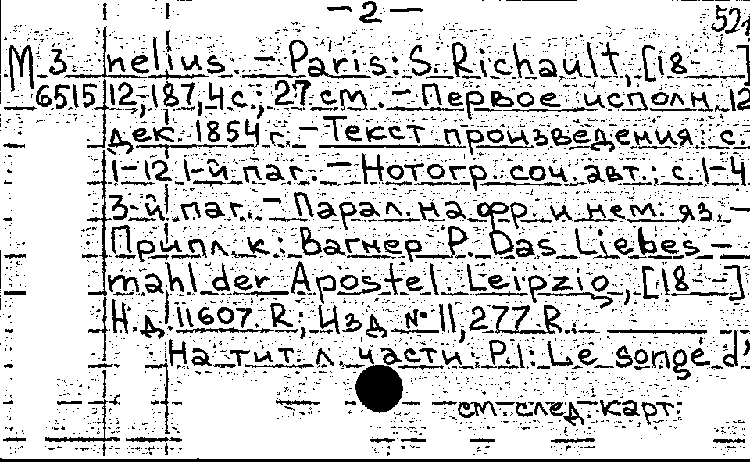 – 2 –
М 3 nelius. – Paris: S. Richault, [18-- ]
6515 12, 187, 4 с.; 27 см. – Первое исполн. 12
дек. 1854 г. – Текст произведения: с.
1–12 1-й паг. – Нотогр. соч. авт.: с. 1–4
3-й паг. – Парал. на фр. и нем. яз. –
Припл. к: Вагнер Р. Das Liebes –
mahl der Apostel. Leipzig, [18--]
Н.д. 11607 R.; Изд. № 11,277 R.
На тит. л. части: P.1: Le songe d'
см. след. карт.